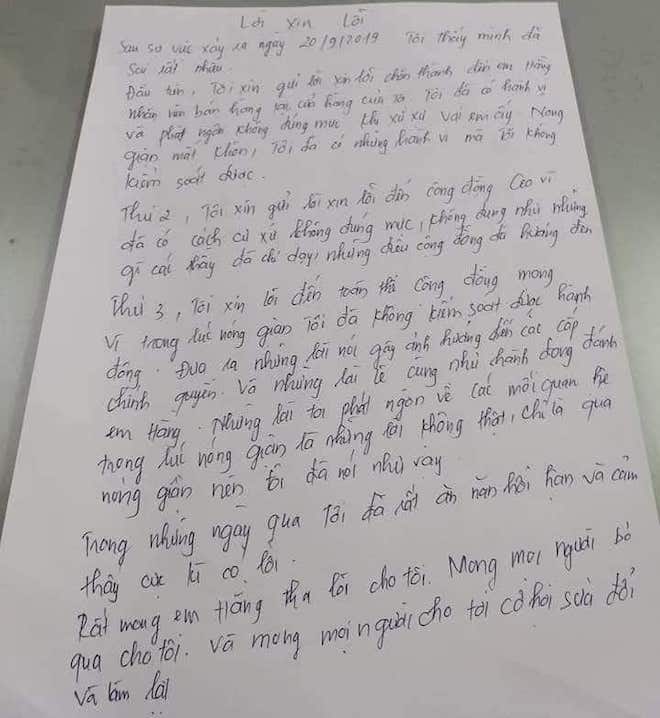 Lời xin lỗi
Sau sự việc xảy ra ngày 20/9/2019 Tôi thấy mình đã
sai rất nhiều.
Đầu tiên, Tôi xin gửi lời xin lỗi chân thành đến em Hằng
nhân viên bán hàng tại cửa hàng của tôi. Tôi đã có hành vi
và phát ngôn không đúng mực khi xử xự với em ấy. Nóng
giận mất khôn, Tôi đã có những hành vi mà tôi không
kiểm soát được.
Thứ 2, Tôi xin gửi lời xin lỗi đến cộng đồng Ceo vì
đã có cách cư xử không đúng mực, không đúng như những
gì các thầy đã chỉ dạy, những điều cộng đồng đã hướng đến
Thứ 3, Tôi xin lỗi đến toàn thể cộng đồng mạng
Vì trong lúc nóng giận Tôi đã không kiểm soát được hành
động. Đưa ra những lời nói gây ảnh hưởng đến các cấp
chính quyền. Và những lời lẽ cũng như hành động đánh
em Hằng. Những lời tôi phát ngôn về các mối quan hệ
trong lúc nóng giận là những lời không thật, chỉ là quá
nóng giận nên tôi đã nói như vậy.
Trong những ngày qua Tôi đã rất ăn năn hối hận và cảm
thấy cực kì có lỗi.
Rất mong em Hằng tha lỗi cho tôi. Mong mọi người bỏ
qua cho tôi. Và mong mọi người cho tôi cơ hội sửa đổi
Và làm lại